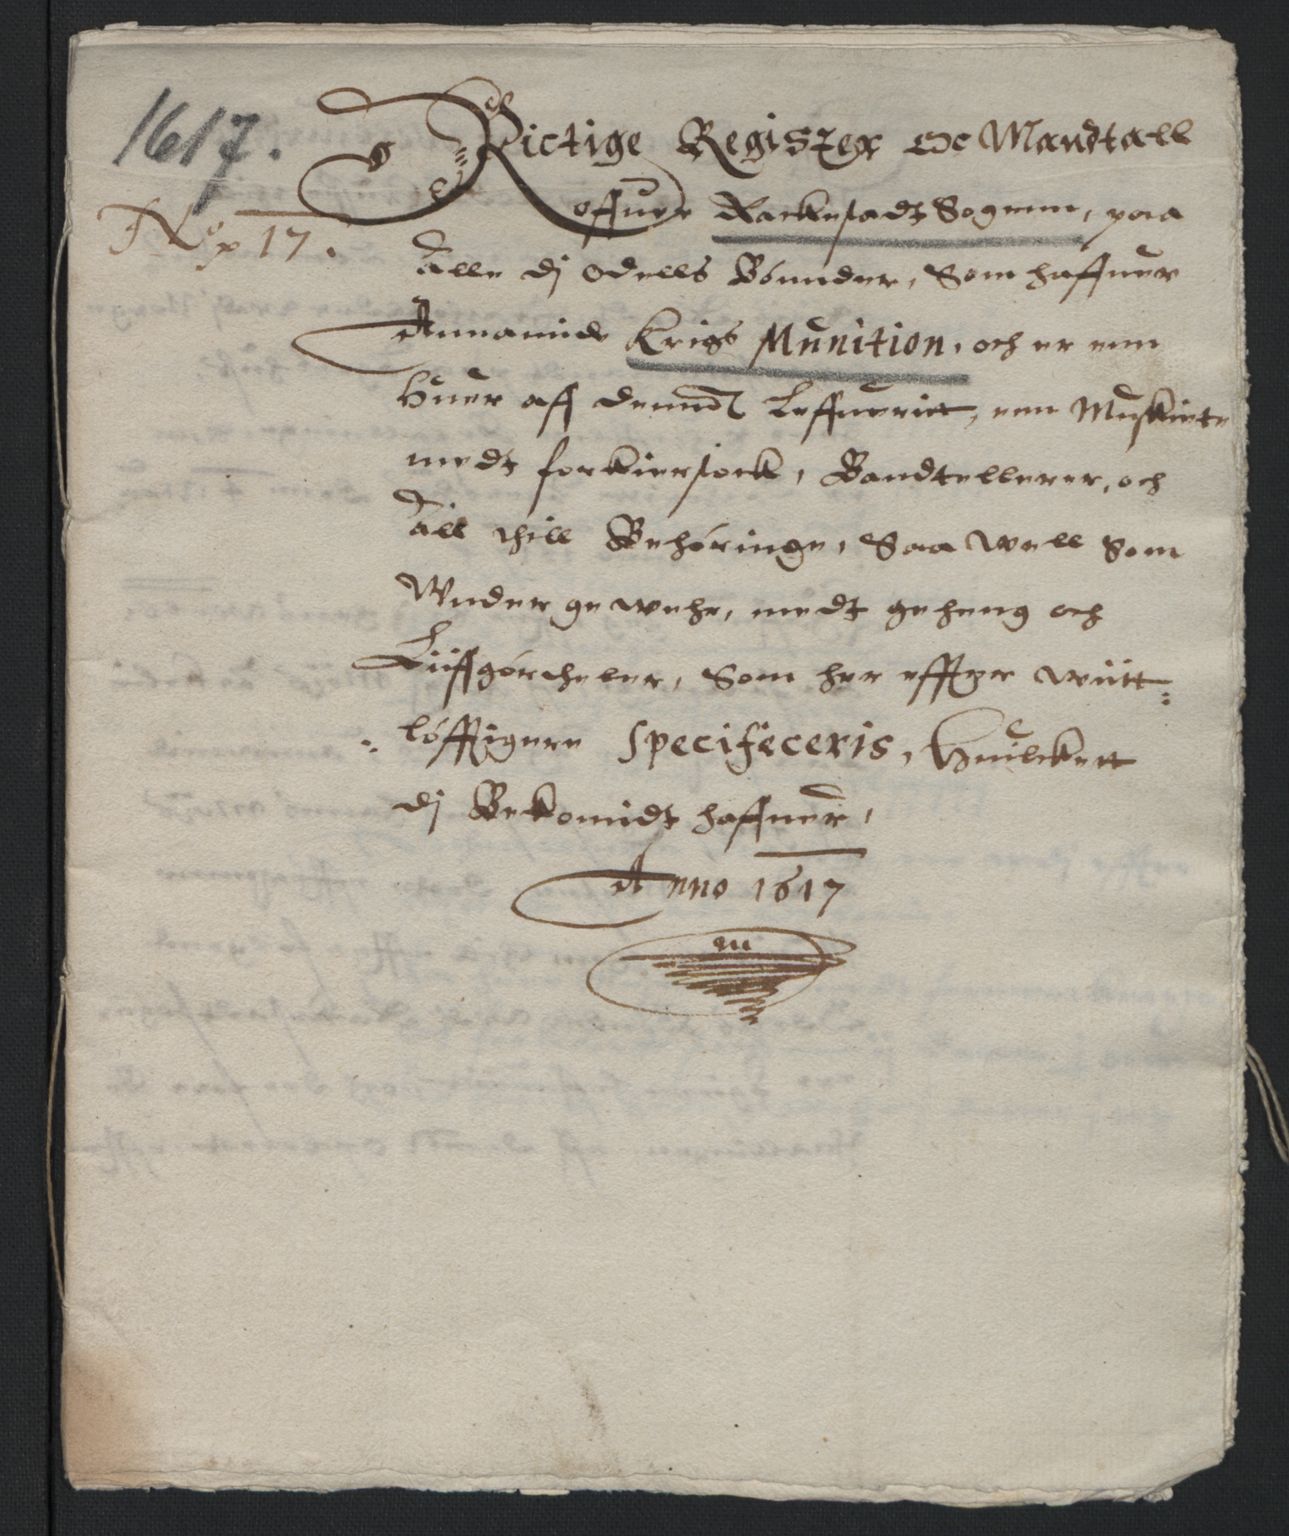 1617.
Rictige Register Oc Mandtall
No 17.
offuer Rackestadt Sogenn, paa
Alle dj Odells Bönnder, Som haffuer
Annamid Krigs Munition, och er enn
Huer aff dennom Leffuerit, een Muskiete
medt forkierstock, Bandtellerer, och
All thill Behöringe, Saa well Som
Wnder gewehr, medt geheng och
Liiffgörtheler, Som her effter wiitt=
= löfftigere Specificeris, Huilckett
dj Bekomidt haffuer,
Anno 1617
m